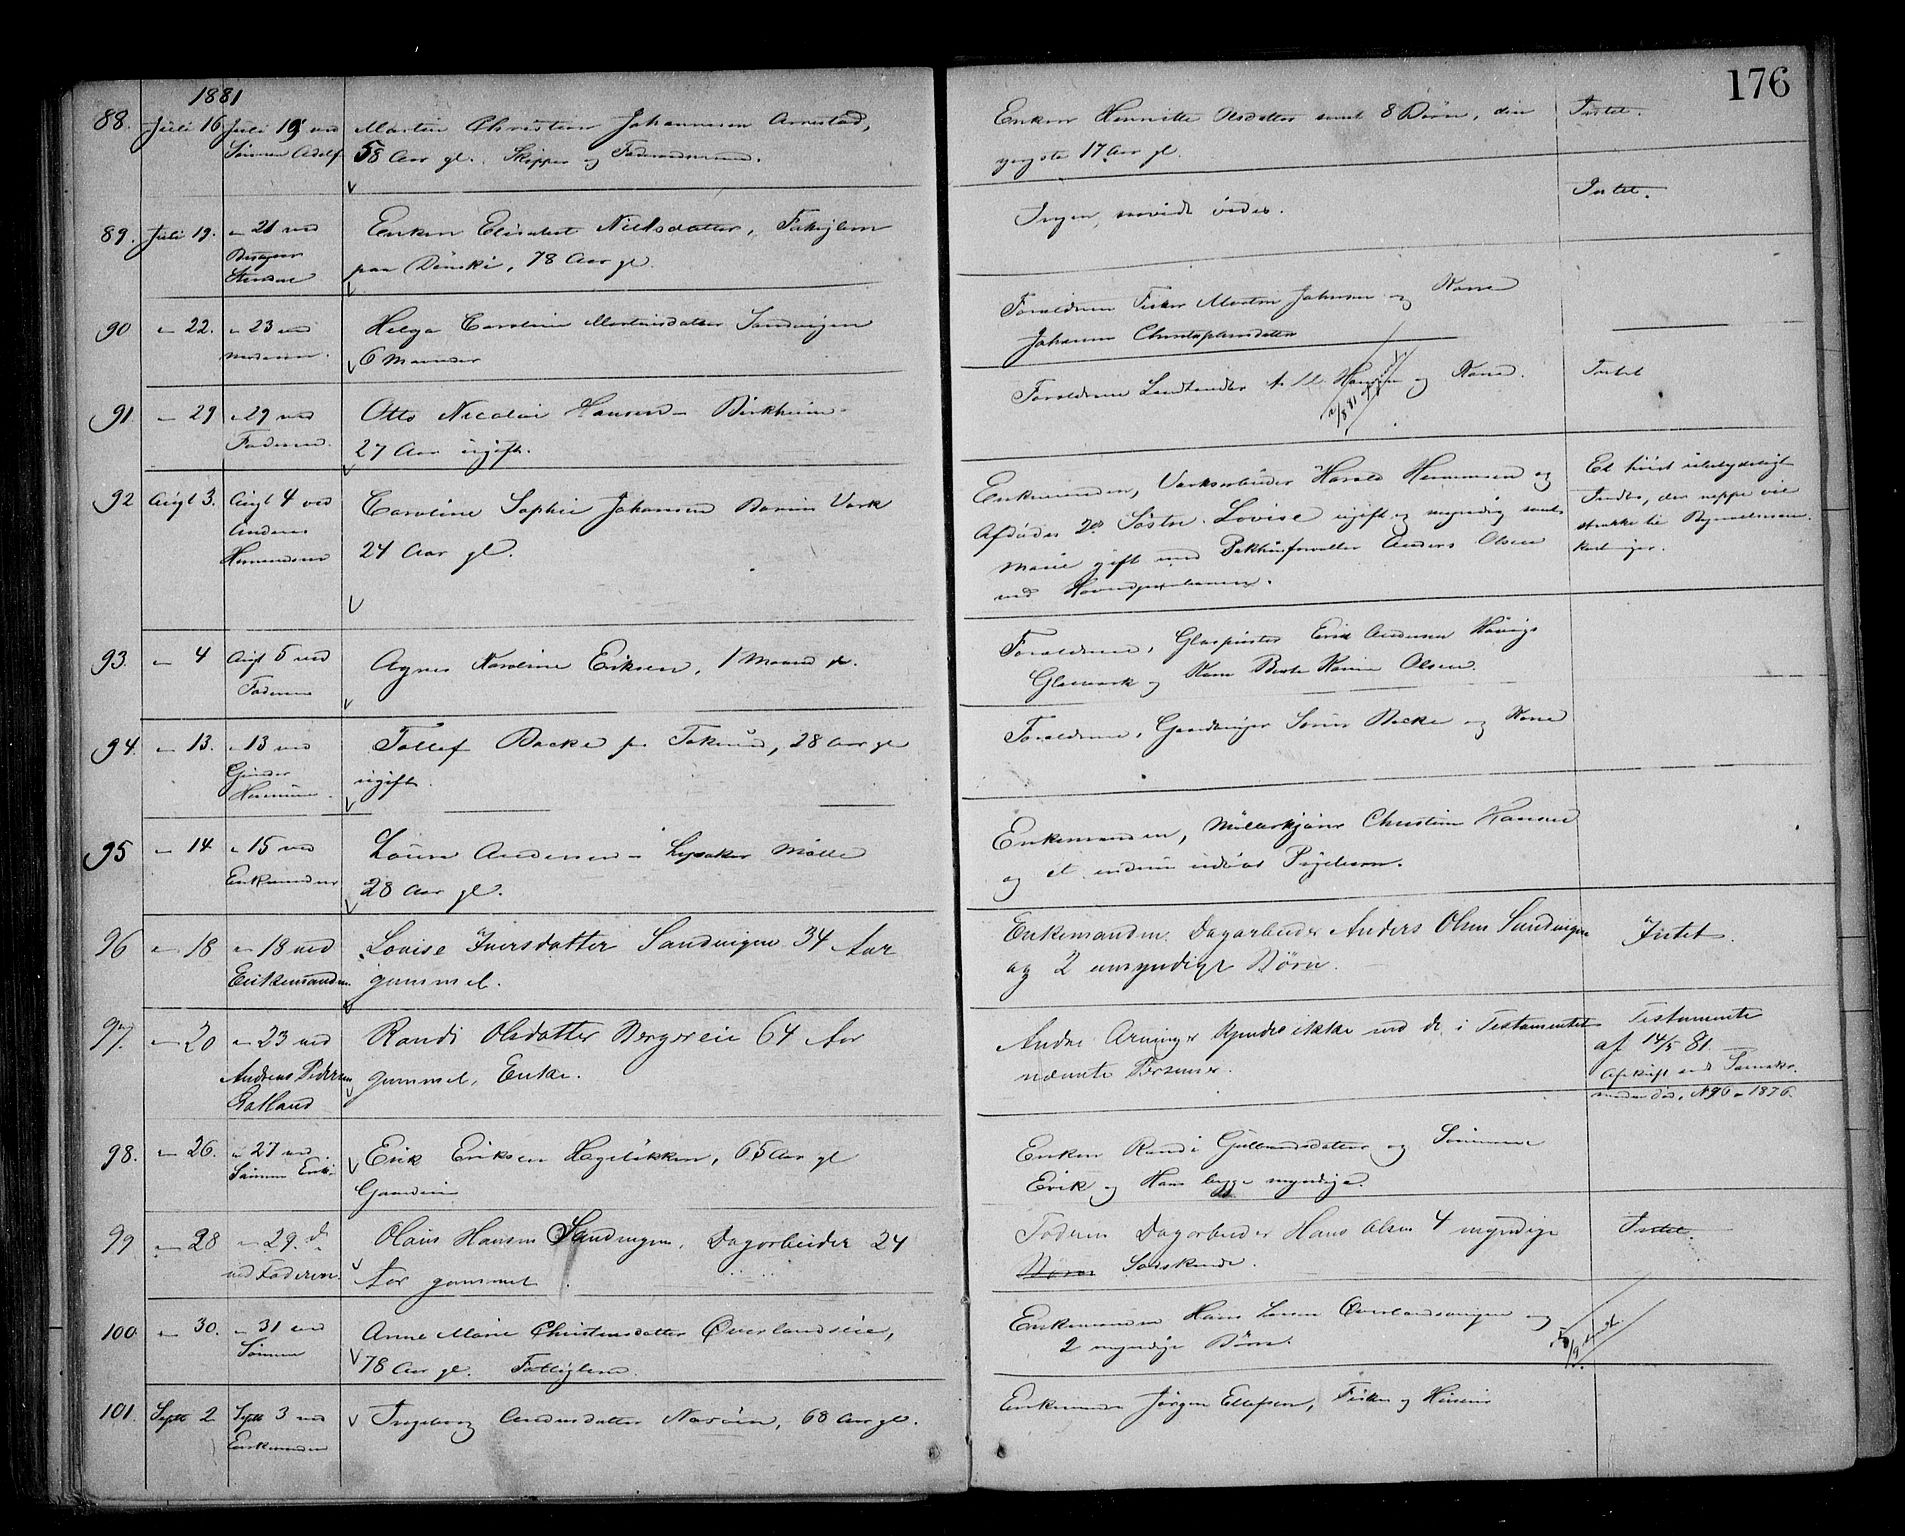 176
1881
88. Juli 16 Juli 19 ved Sønnen Adolf
Martin Christian Johannesen
58 Aar gl. Skipper og
Enken Henritte Olsdatter samt 8 Børn, den
yngste 17 Aar gl.
Intet.
89. Juli 19. – 21 ved
Enken Elisabet Nielsdatter, Fattiglem
paa 78 Aar gl.
Ingen, saavidt vides.
Intet.
90 – 22. – 23 ved Moderen.
Helga Caroline Martinsdatter Sandvigen
6 Maaneder
Forældrene Fisker Martin Johnsen og Kone
Johanne Christophersdatter
91. – 29 – 29 ved Faderen.
Otto Nicolai Hansen – Birkheim –
27 Aar ugift.
Forældrene Landhandler Hansen og Kone.
Intet
92 Augt 3. Augt 4 ved Anders Hermansen
Caroline Sophie Johansen Bærums Værk
24 Aar gl.
Enkemanden, Værksarbeider Harald Hermansen og
Afdødes 2de Søstre Lovise ugift og myndig samt
Marie gift med Pakhusforvalter Anders Olsen
ved
Et høist ubetydeligt
Indbo, der neppe vil
strække til Begravelsesom-
kostninger.
93. – 4 Augt 5 ved Faderen
Agnes Karoline Eriksen, 1 Maaned
Forældrene, Glaspuster Erik Andersen Høviks
Glasværk og Kone Berte Karine Olsen.
94. – 13. – 13 ved
Tollef Bakke 28 Aar gl
ugift.
Forældrene, Gaardbruger Bakke og Kone
95 – 14 – 15 ved Enkemanden
Andersen – Lysaker Mølle
28 Aar gl.
Enkemanden, Møllerkjører Christian Hansen
og et endnu udøbt Pigebarn.
96 – 18 – 18 ved Enkemanden
Lovise Iversdatter Sandvigen 34 Aar
gammel.
Enkemanden Dagarbeider Anders Olsen Sandvigen
og 2 umyndige Børn.
Intet.
97. – 20 – 23 ved Andreas Pedersen
Randi Olsdatter Bergereie 64 Aar
gammel, Enke.
Andre Arvinger kjendes ikke end de i Testamentet
nævnte Personer.
Testamente
af 14/5 81
Afskrift ved
No 96 – 1876.
98. – 26. – 27 ved Sønnen Erik
Erik Eriksen Hageløkken, 65 Aar gl
Enken Randi Gulbrandsdatter og Sønnerne
Erik og Hans begge myndige.
99 – 28 – 29. ds ved Faderen.
Olaus Hansen Sandvigen, Dagarbeider 24
Aar gammel
Faderen Dagarbeider Hans Olsen 4 myndige
Børn Sødskende.
Intet.
100. – 30. – 31 ved Sønnen
Anne Marie Christensdatter Øverlandseie,
78 Aar gl. Fattiglem.
Enkemanden Hans Larsen og
2 myndige Børn.
101. Septbr 2 Septbr 3 ved Enkemanden
Ingeborg Andersdatter 68 Aar gl.
Enkemand Jørgen Ellefsen, Fisker og